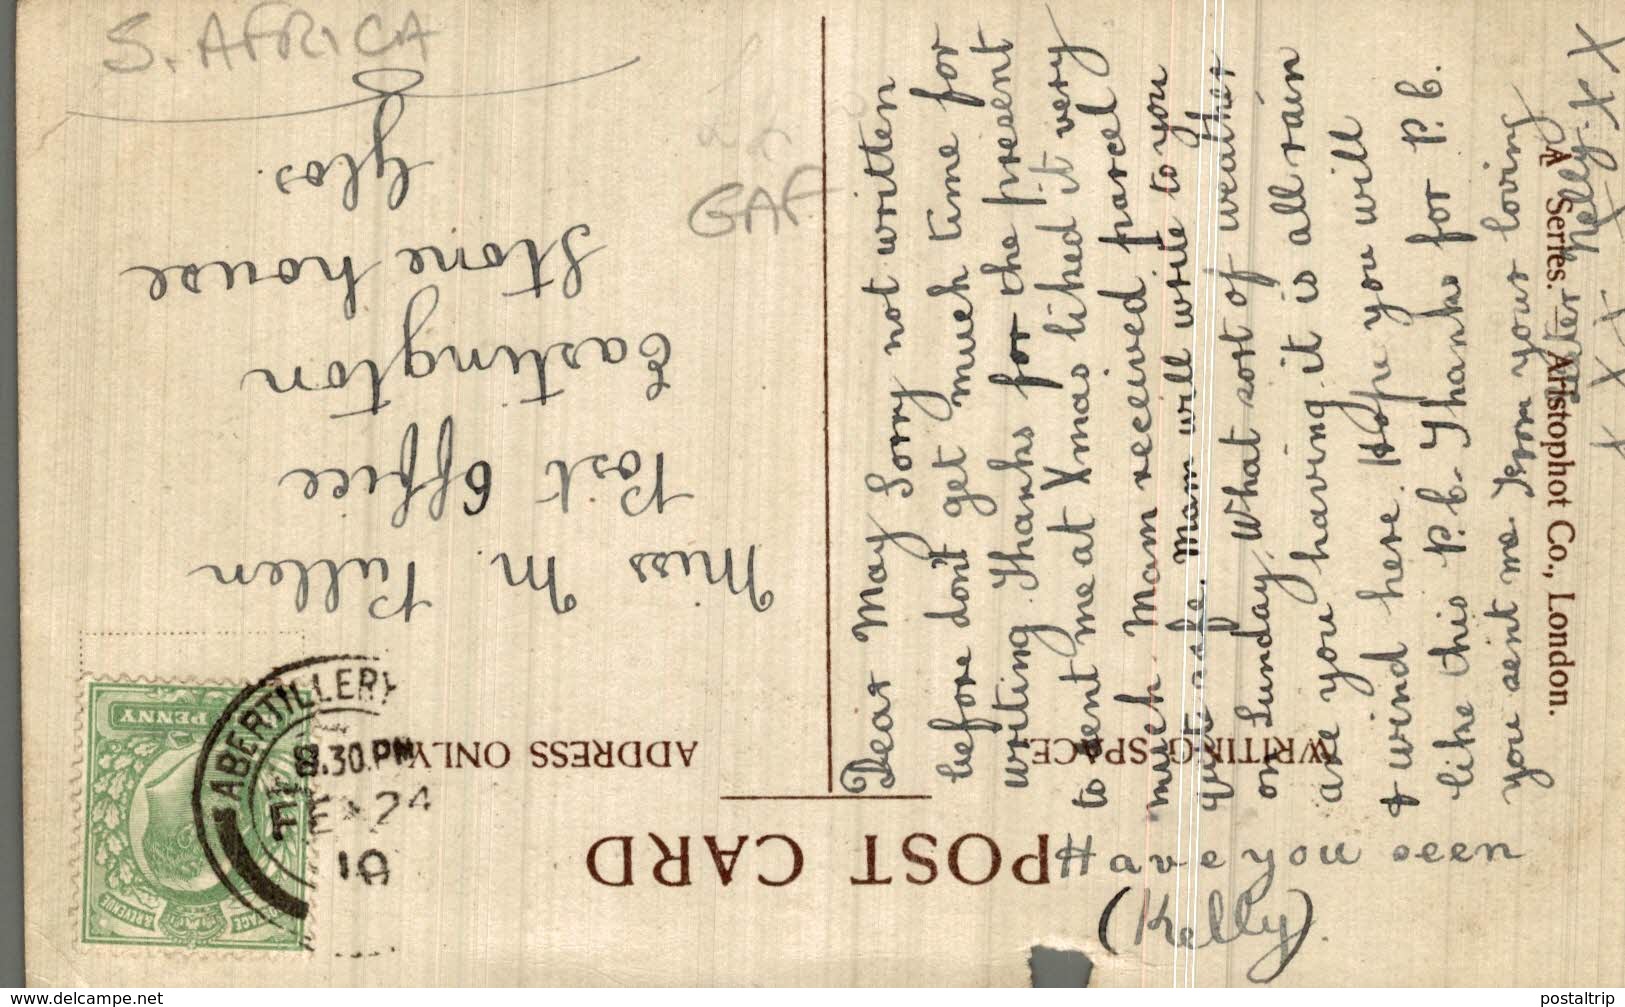 S. AFRICA
GAF
POST CARD
ADDRESS ONLY.
WRITING SPACE.
PENNY
POSTAGE & REVENUE
ABERTILLERY
8.30.PM
24
10
Miss M. Pullen
Post Office
Eastington
Stone house
Glos.
Dear May Sorry not written
before don't get much time for
writing. Thanks for the present
to sent me at Xmas liked it very
much. Mam received parcel
quite safe. Mam will write to you
on Sunday. What sort of weather
are you having it is all rain
& wind here. Hope you will
like this P.C. Thanks for P.C.
you sent me From your loving
Sister Nelly. X X
X X X
Have you seen
(Kelly).
"A" Series. — Aristophot Co., London.
www.delcampe.net
postaltrip